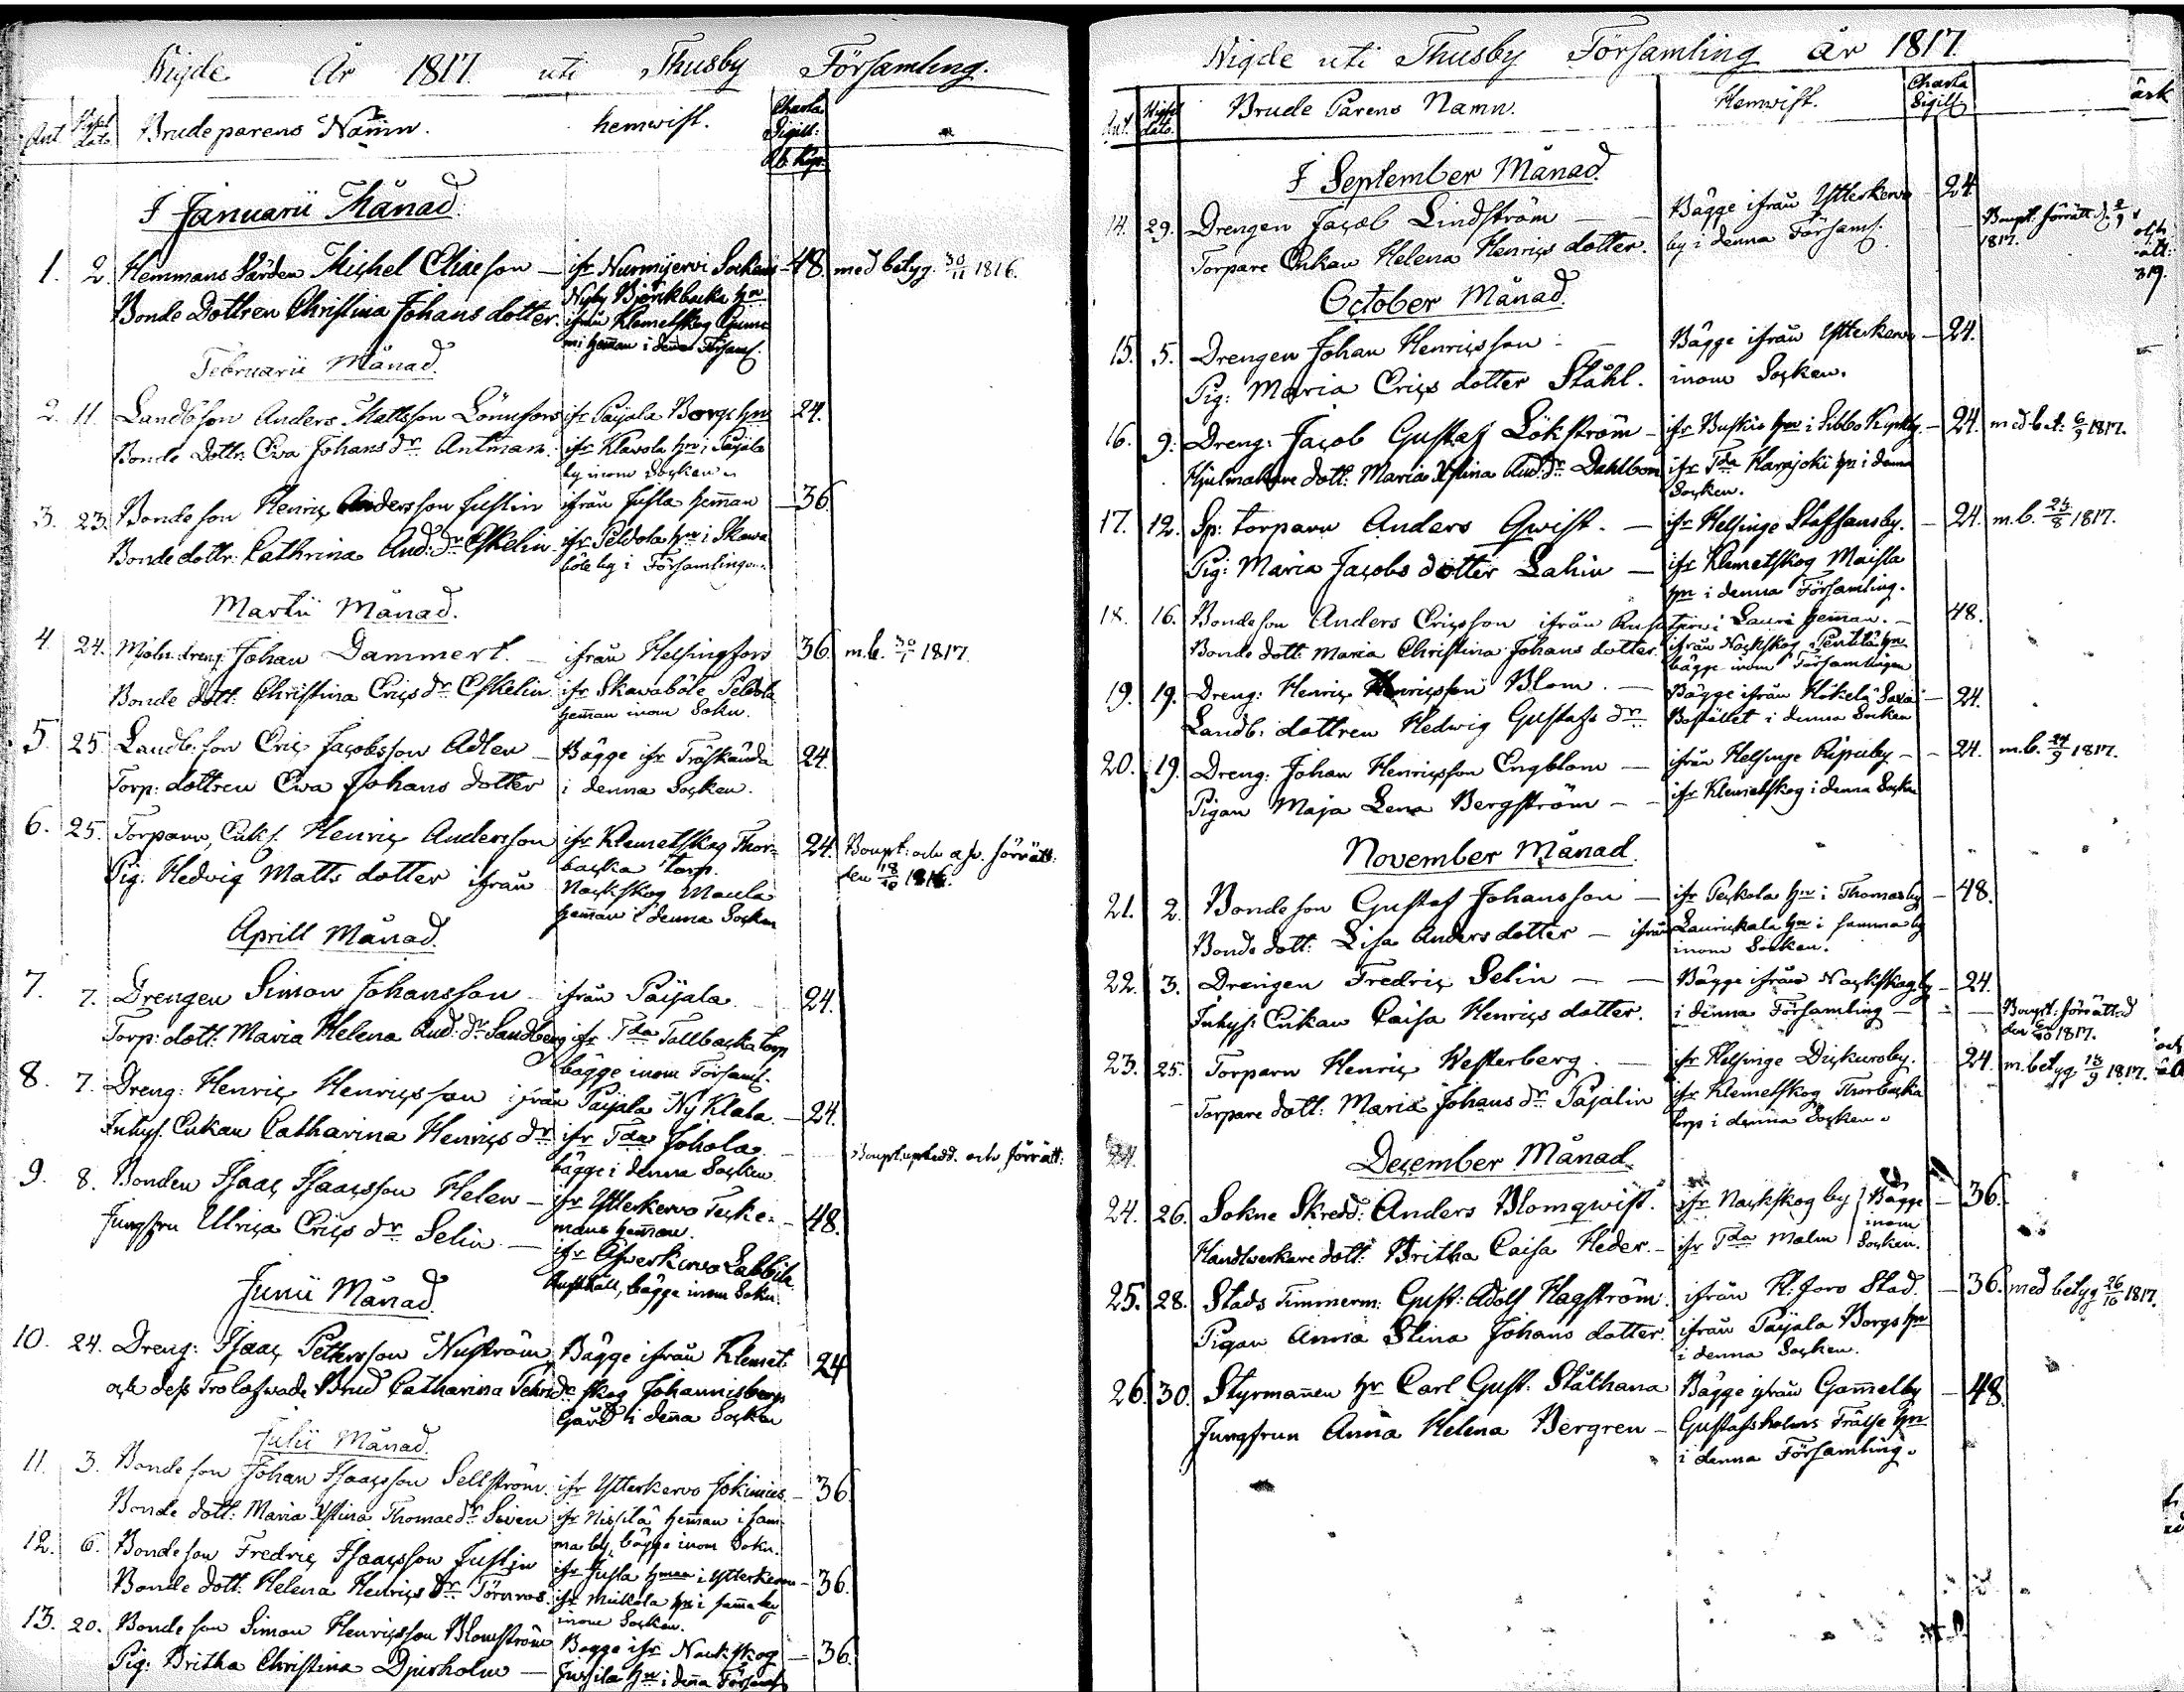 Wigde År 1817 uti Thusby Församling.
Ant Wigsel dato Brudeparens Namn. hemwist. Charta Sigill:
Rb. Kop:
I Januarii Månad.
1. 2. Hemmans Värden Michel Eliaeson — ifr Nurmijervi Sockens 48. med betyg. 30/11 1816.
Nyby Björckbacka hn
Bonde Dottren Christina Johans dotter. ifrån Klemetskog
hemman i denna Församl.
Februarii Månad.
2. 11. Landb:son Anders Mattsson Lönnfors ifr Paijala Borgs hn 24.
Bonde Dottr: Eva Johans dr Antman. ifr Klavola hn i Paijala
by inom Socken
3. 23. Bonde son Henric Andersson Justin ifrån Jusla heman — 36.
Bonde dottr: Cathrina And: dr Eskelin ifr Peldola hn i Skava
böle by i Församlingen.
Martii Månad.
4. 24. Möln. dreng: Johan Dammert. — ifrån Helsingfors 36. m.b. 30/1 1817.
Bonde dott. Christina Erics dr Eskelin ifr Skavaböle Peldola
heman inom Sokn.
5. 25. Landb: son Eric Jacobsson Adlen — Bägge ifr Träskända 24.
Torp: dottren Eva Johans dotter i denna Socken.
6. 25. Torparen, Enkl. Henric Andersson ifr Klemetskog Thor- 24. Boupt: och afv. förrätt:
backa torp. den 18/10 1816.
Pig. Hedvig Matts dotter ifrån Nackskog Maula
heman i denna Socken
Aprill Månad.
7. 7. Drengen Simon Johansson — ifrån Paijala — 24.
Torp: dott: Maria Helena And: dr Sandberg ifr Tda Tallbacka torp
bägge inom Församl.
8. 7. Dreng: Henric Henricsson ifrån Paijala Ny Klala — 24.
Inhys. Enkan Catharina Henrics dr ifr Tda Johola — Boupt: förrätt:
bägge i denna Socken
9. 8. Bonden Isaac Isaacsson Helen — ifr Ytterkervo Teske- — 48.
mans heman.
Jungfru Ulrica Erics dr Selin — ifr Öfverkervo Labbila
Rusthåll, bägge inom Sokn.
Junii Månad.
10. 24. Dreng: Isaac Pettersson Nyström Bägge ifrån Klemet- 24
och dess Trolofwade Brud Catharina skog Johannisbergs
Gård i dena Socken
Julii Månad.
11. 3. Bonde son Johan Isaacsson Sellström. ifr Ytterkervo Jokinies — 36.
Bonde dott: Maria Xstina Thomae dr Siven ifr Nissilä heman i sam-
ma by, bägge inom Sokn.
12. 6. Bonde son Fredric Isaacsson Justin ifr Jusla hman i Ytterkervo — 36.
Bonde dott: Helena Henrics dr Törnroos. ifr Mickola hn i sama by
inom Socken.
13. 20. Bonde son Simon Henricsson Blomström Bägge ifr Nackskog — 36.
Pig: Britha Christina Djurholm — Jussila hn i dena Församl
Wigde uti Thusby Församling år 1817.
Ant. Wigsel dato. Brude Parens Namn. Hemwist. Charta Sigill
I September Månad.
14. 29. Drengen Jacob Lindström — Bägge ifrån Ytterkervo 24.
Torpare Enkan Helena Henrics dotter. by i denna Församl. Boupt: förrätt d. 2/9 1817.
October Månad.
15. 5. Drengen Johan Henricsson — Bägge ifrån Ytterkervo — 24.
Pig: Maria Erics dotter Ståhl. inom Socken.
16. 9. Dreng: Jacob Gustaf Lökström — ifr Buskis hn i Sibbo Kyrkby. — 24. med bet: 6/9 1817.
Hjulmakare dott: Maria Xstina And: dr Dahlbom ifr Tda Harajoki hn i denna
Socken.
17. 12. Sp: torparen Anders Qwist. — ifr Helsinge Staffansby. — 24. m.b. 24/8 1817.
Pig: Maria Jacobs dotter Lahin — ifr Klemetskog Maisla
hn i denna Församling.
18. 16. Bonde son Anders Ericsson ifrån Rusutjervi Lauri heman. — 48.
Bonde dott: Maria Christina Johans dotter. ifrån Nackskog Pentilä hn
bägge inom Församlingen
19. 19. Dreng: Henric Henricsson Blom. — Bägge ifrån Hökelä Saxa — 24.
Landb: dottren Hedwig Gustafs dr Bostället i denna Socken
20. 19. Dreng: Johan Henricsson Engblom — ifrån Helsinge Ripuby — 24. m.b. 27/9 1817.
Pigan Maja Lena Bergström — ifr Klemetskog i denna Sockn
November Månad.
21. 2. Bonde son Gustaf Johansson — ifr Peckola hn i Thomasby — 48.
Bonde dott: Lisa Anders dotter — ifrån Laurickala hn i samma by
inom Socken.
22. 3. Drengen Fredric Selin — Bägge ifrån Nackskog by — 24.
Inhys: Enkan Caisa Henrics dotter. i denna Församling — Boupt: förrättad
den 6/10 1817.
23. 25. Torparn Henric Westerberg. — ifr Helsinge Dickursby. 24. m. betyg 18/9 1817.
Torpare dott: Maria Johans dr Pajalin ifr Klemetskog Thorbacka
torp i denna Socken.
December Månad.
24. 26. Sokne Skredd: Anders Blomqwist. ifr Nackskog by Bägge — 36.
inom
Handtverkare dott: Britha Caisa Heder. — ifr Tda Malm Socken.
25. 28. Stads Timmerm: Gust: Adolf Hagström. ifrån H:fors Stad. — 36. med betyg 26/10 1817.
Pigan Anna Stina Johans dotter. ifrån Paijala Borgs hn
i denna Socken.
26. 30. Styrmannen hr Carl Gust. Stålhana Bägge ifrån Gammelby — 48.
Jungfrun Anna Helena Bergren — Gustafsholms Frälse hn
i denna Församling.